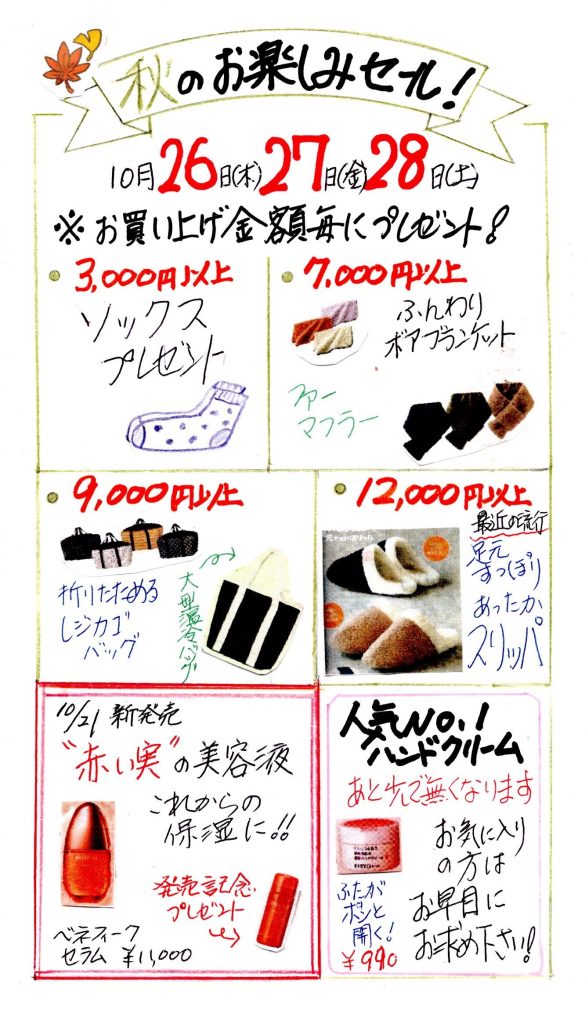 秋のお楽しみセール!
10月26日(木)27日(金)28日(土)
※お買い上げ金額毎にプレゼント!
3,000円以上
ソックス
プレゼント
7,000円以上
ふんわり
ボアブランケット
ファー
マフラー
9,000円以上
折りたためる
レジカゴ
バッグ
大型温冷バッグ
12,000円以上
最近の流行
足元
すっぽり
あったか
スリッパ
10/21 新発売
"赤い実"の美容液
これからの
保湿に!!
発売記念
プレゼント
ベネフィーク
セラム ¥11,000
人気NO.1
ハンドクリーム
あと少しで無くなります
お気に入り
の方は
お早目に
お求め下さい!
ふたが
ポンと
開く!
¥990